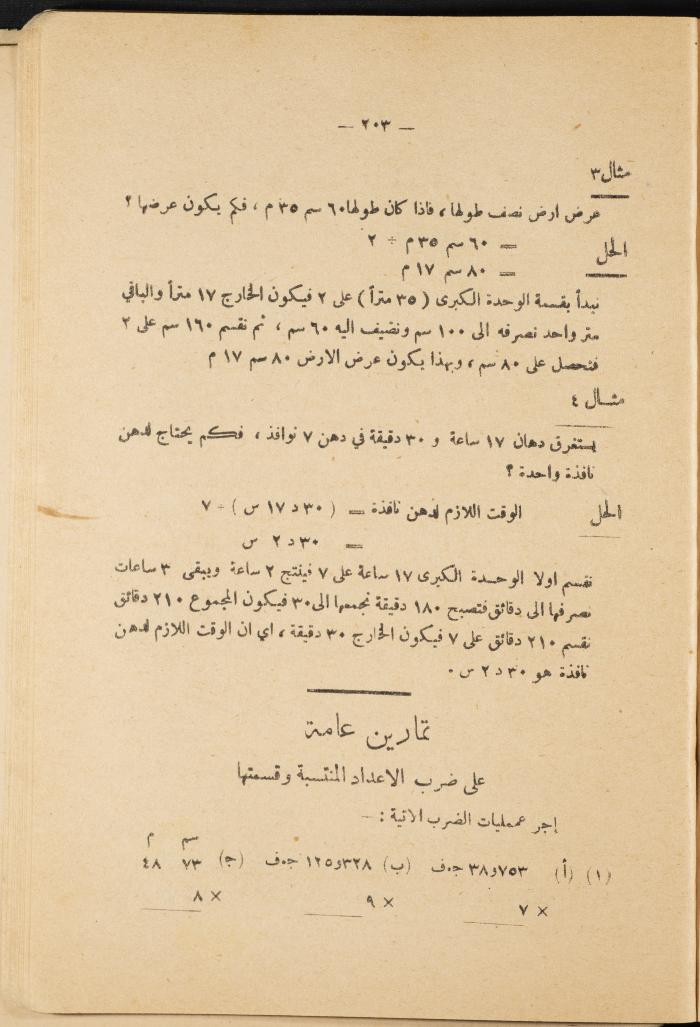 — ٢٠٣ —
مثال ٣
عرض ارض نصف طولها، فاذا كان طولها ٦٠ سم ٣٥ م، فكم يكون عرضها ؟
الحل = ٦٠ سم ٣٥ م ÷ ٢
= ٨٠ سم ١٧ م
نبدأ بقسمة الوحدة الكبرى ( ٣٥ متراً ) على ٢ فيكون الخارج ١٧ متراً والباقي
متر واحد نصرفه الى ١٠٠ سم ونضيف اليه ٦٠ سم ، ثم نقسم ١٦٠ سم على ٢
فنحصل على ٨٠ سم ، وبهذا يكون عرض الارض ٨٠ سم ١٧ م
مثال ٤
يستغرق دهان ١٧ ساعة و ٣٠ دقيقة في دهن ٧ نوافذ ، فكم يحتاج لدهن
نافذة واحدة ؟
الحل الوقت اللازم لدهن نافذة = ( ٣٠ د ١٧ س ) ÷ ٧
= ٣٠ د ٢ س
نقسم اولا الوحدة الكبرى ١٧ ساعة على ٧ فينتج ٢ ساعة ويبقى ٣ ساعات
نصرفها الى دقائق فتصبح ١٨٠ دقيقة نجمعها الى ٣٠ فيكون المجموع ٢١٠ دقائق
نقسم ٢١٠ دقائق على ٧ فيكون الخارج ٣٠ دقيقة ، اي ان الوقت اللازم لدهن
نافذة هو ٣٠ د ٢ س .
تمارين عامة
على ضرب الاعداد المنتسبة وقسمتها
إجر عمليات الضرب الآتية : —
سم م
(١) (أ) ٧٥٣و٣٨ ج.ف (ب) ٣٢٨و١٢٥ ج.ف (ج) ٧٣ ٤٨
× ٧ × ٩ × ٨